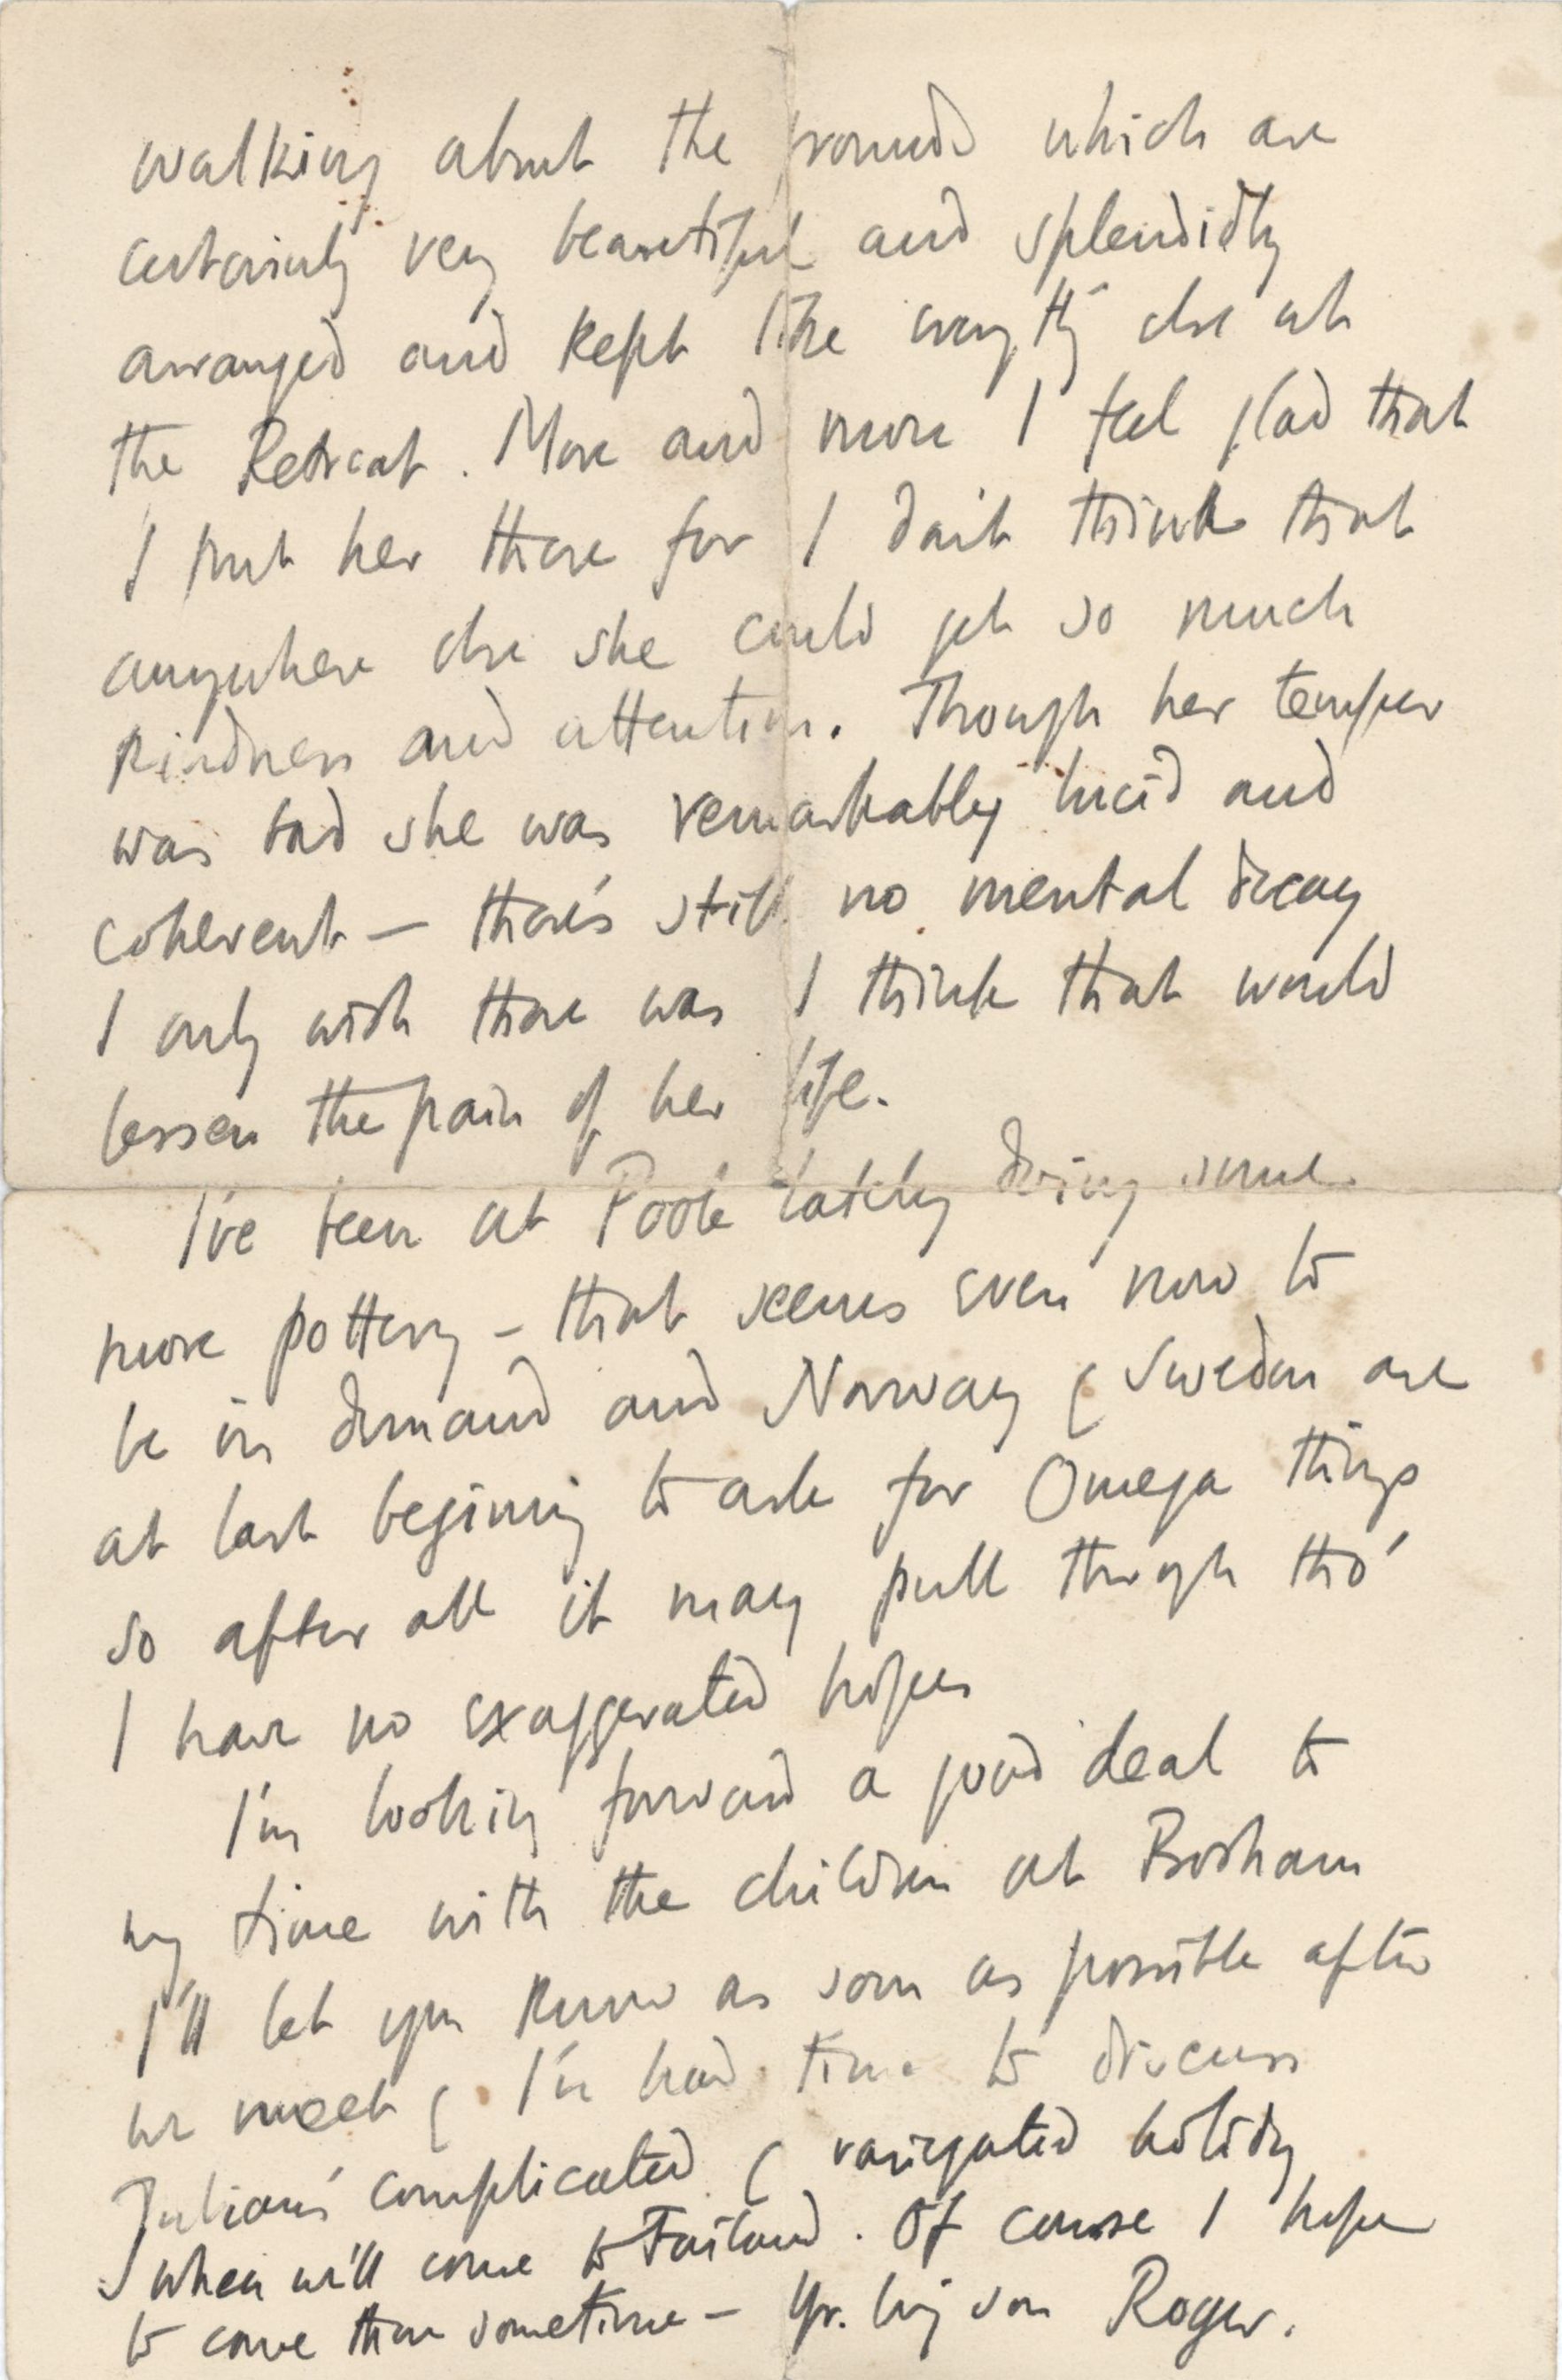 walking about the grounds which are
certainly very beautiful and splendidly
arranged and kept like everythg else at
the Retreat. More and more I feel glad that
I put her there for I don't think that
anywhere else she could get so much
kindness and attention. Though her temper
was bad she was remarkably lucid and
coherent — there's still no mental decay
I only wish there was I think that would
lessen the pain of her life.
I've been at Poole lately doing some
more pottery – that seems even now to
be in demand and Norway & Sweden are
at last begining to ask for Omega things
so after all it may pull through tho'
I have no exaggerated hopes
I'm looking forward a good deal to
my time with the children at Bosham
I'll let you know as soon as possible after
we meet & I've had time to discuss
Julian's complicated & variegated holiday
when we'll come to Failand. Of course I hope
to come there sometime – Yr. lvg son Roger.